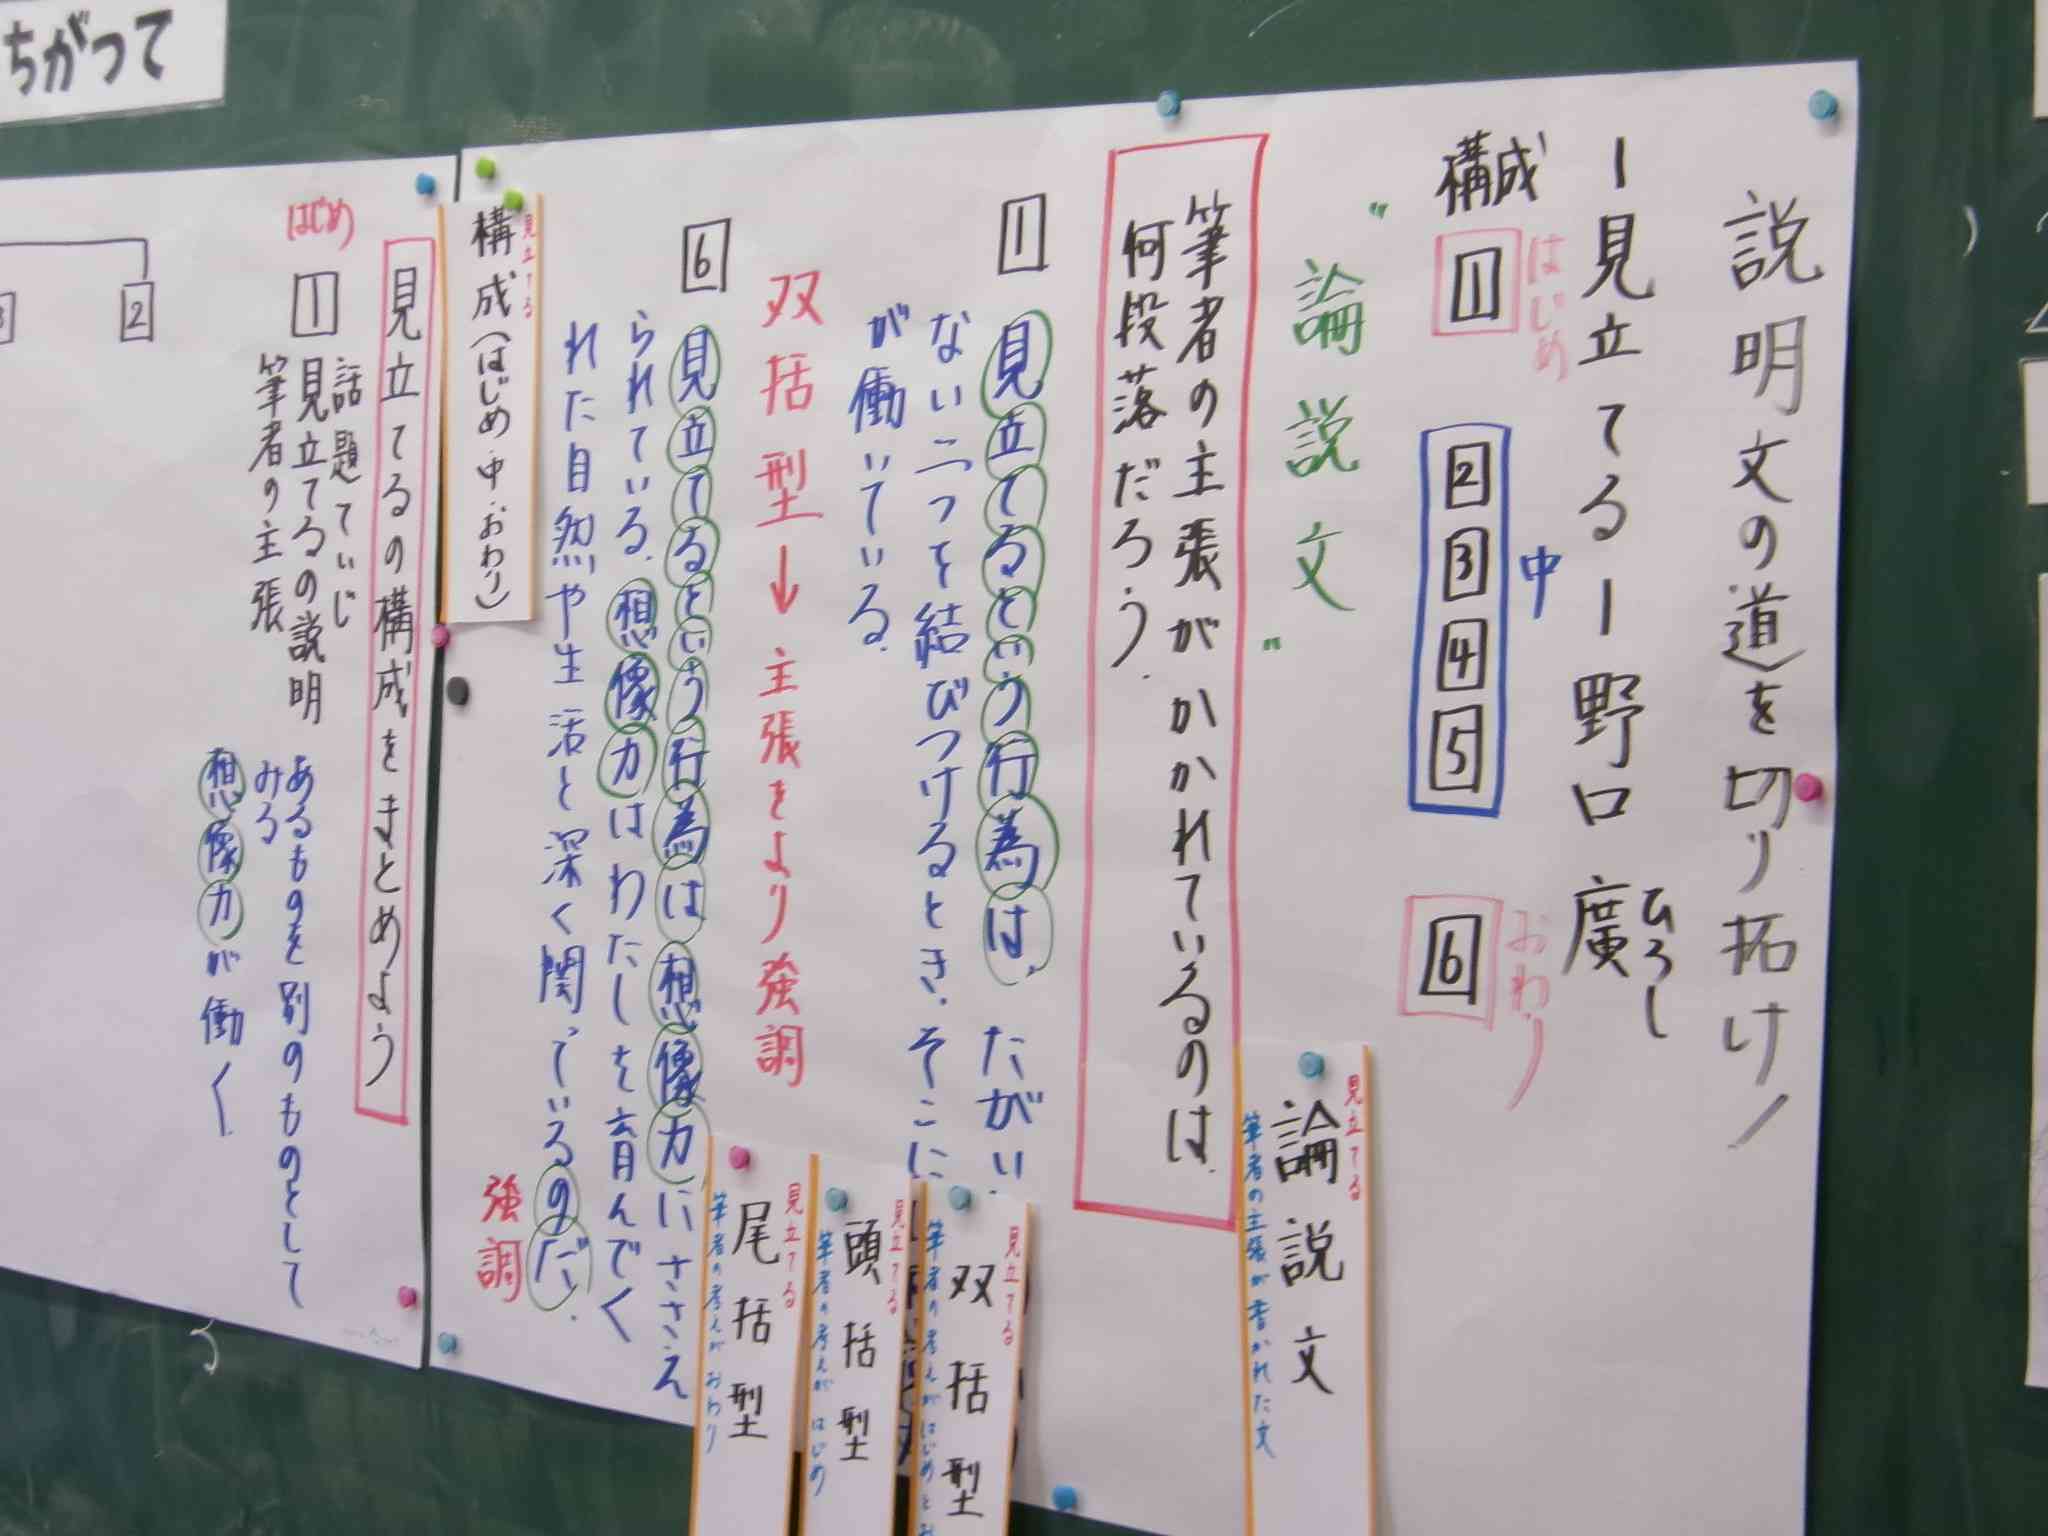 説明文の道を切り拓け！
ー見立てるー野口廣
ひろし
構成
はじめ
1
中
2
3
4
5
おわり
6
"論説文"
見立てる
論説文
筆者の主張が書かれた文
筆者の主張がかかれているのは、
何段落だろう。
1
見立てるという行為は、たがい
ない二つを結びつけるとき、そこに
が働いている。
見立てる
双括型
筆者の考えがはじめと
双括型→主張をより強調
見立てる
頭括型
筆者の考えがはじめ
見立てる
尾括型
筆者の考えがおわり
6
見立てるという行為は想像力にささえ
られている。想像力はわたしを育んでく
れた自然や生活と深く関っているのだ。
強調
見立てる
構成(はじめ・中・おわり)
見立てるの構成をまとめよう
はじめ
1
話題ていじ
見立てるの説明
筆者の主張
あるものを別のものとして
みる
想像力が働く
2
3
ちがって